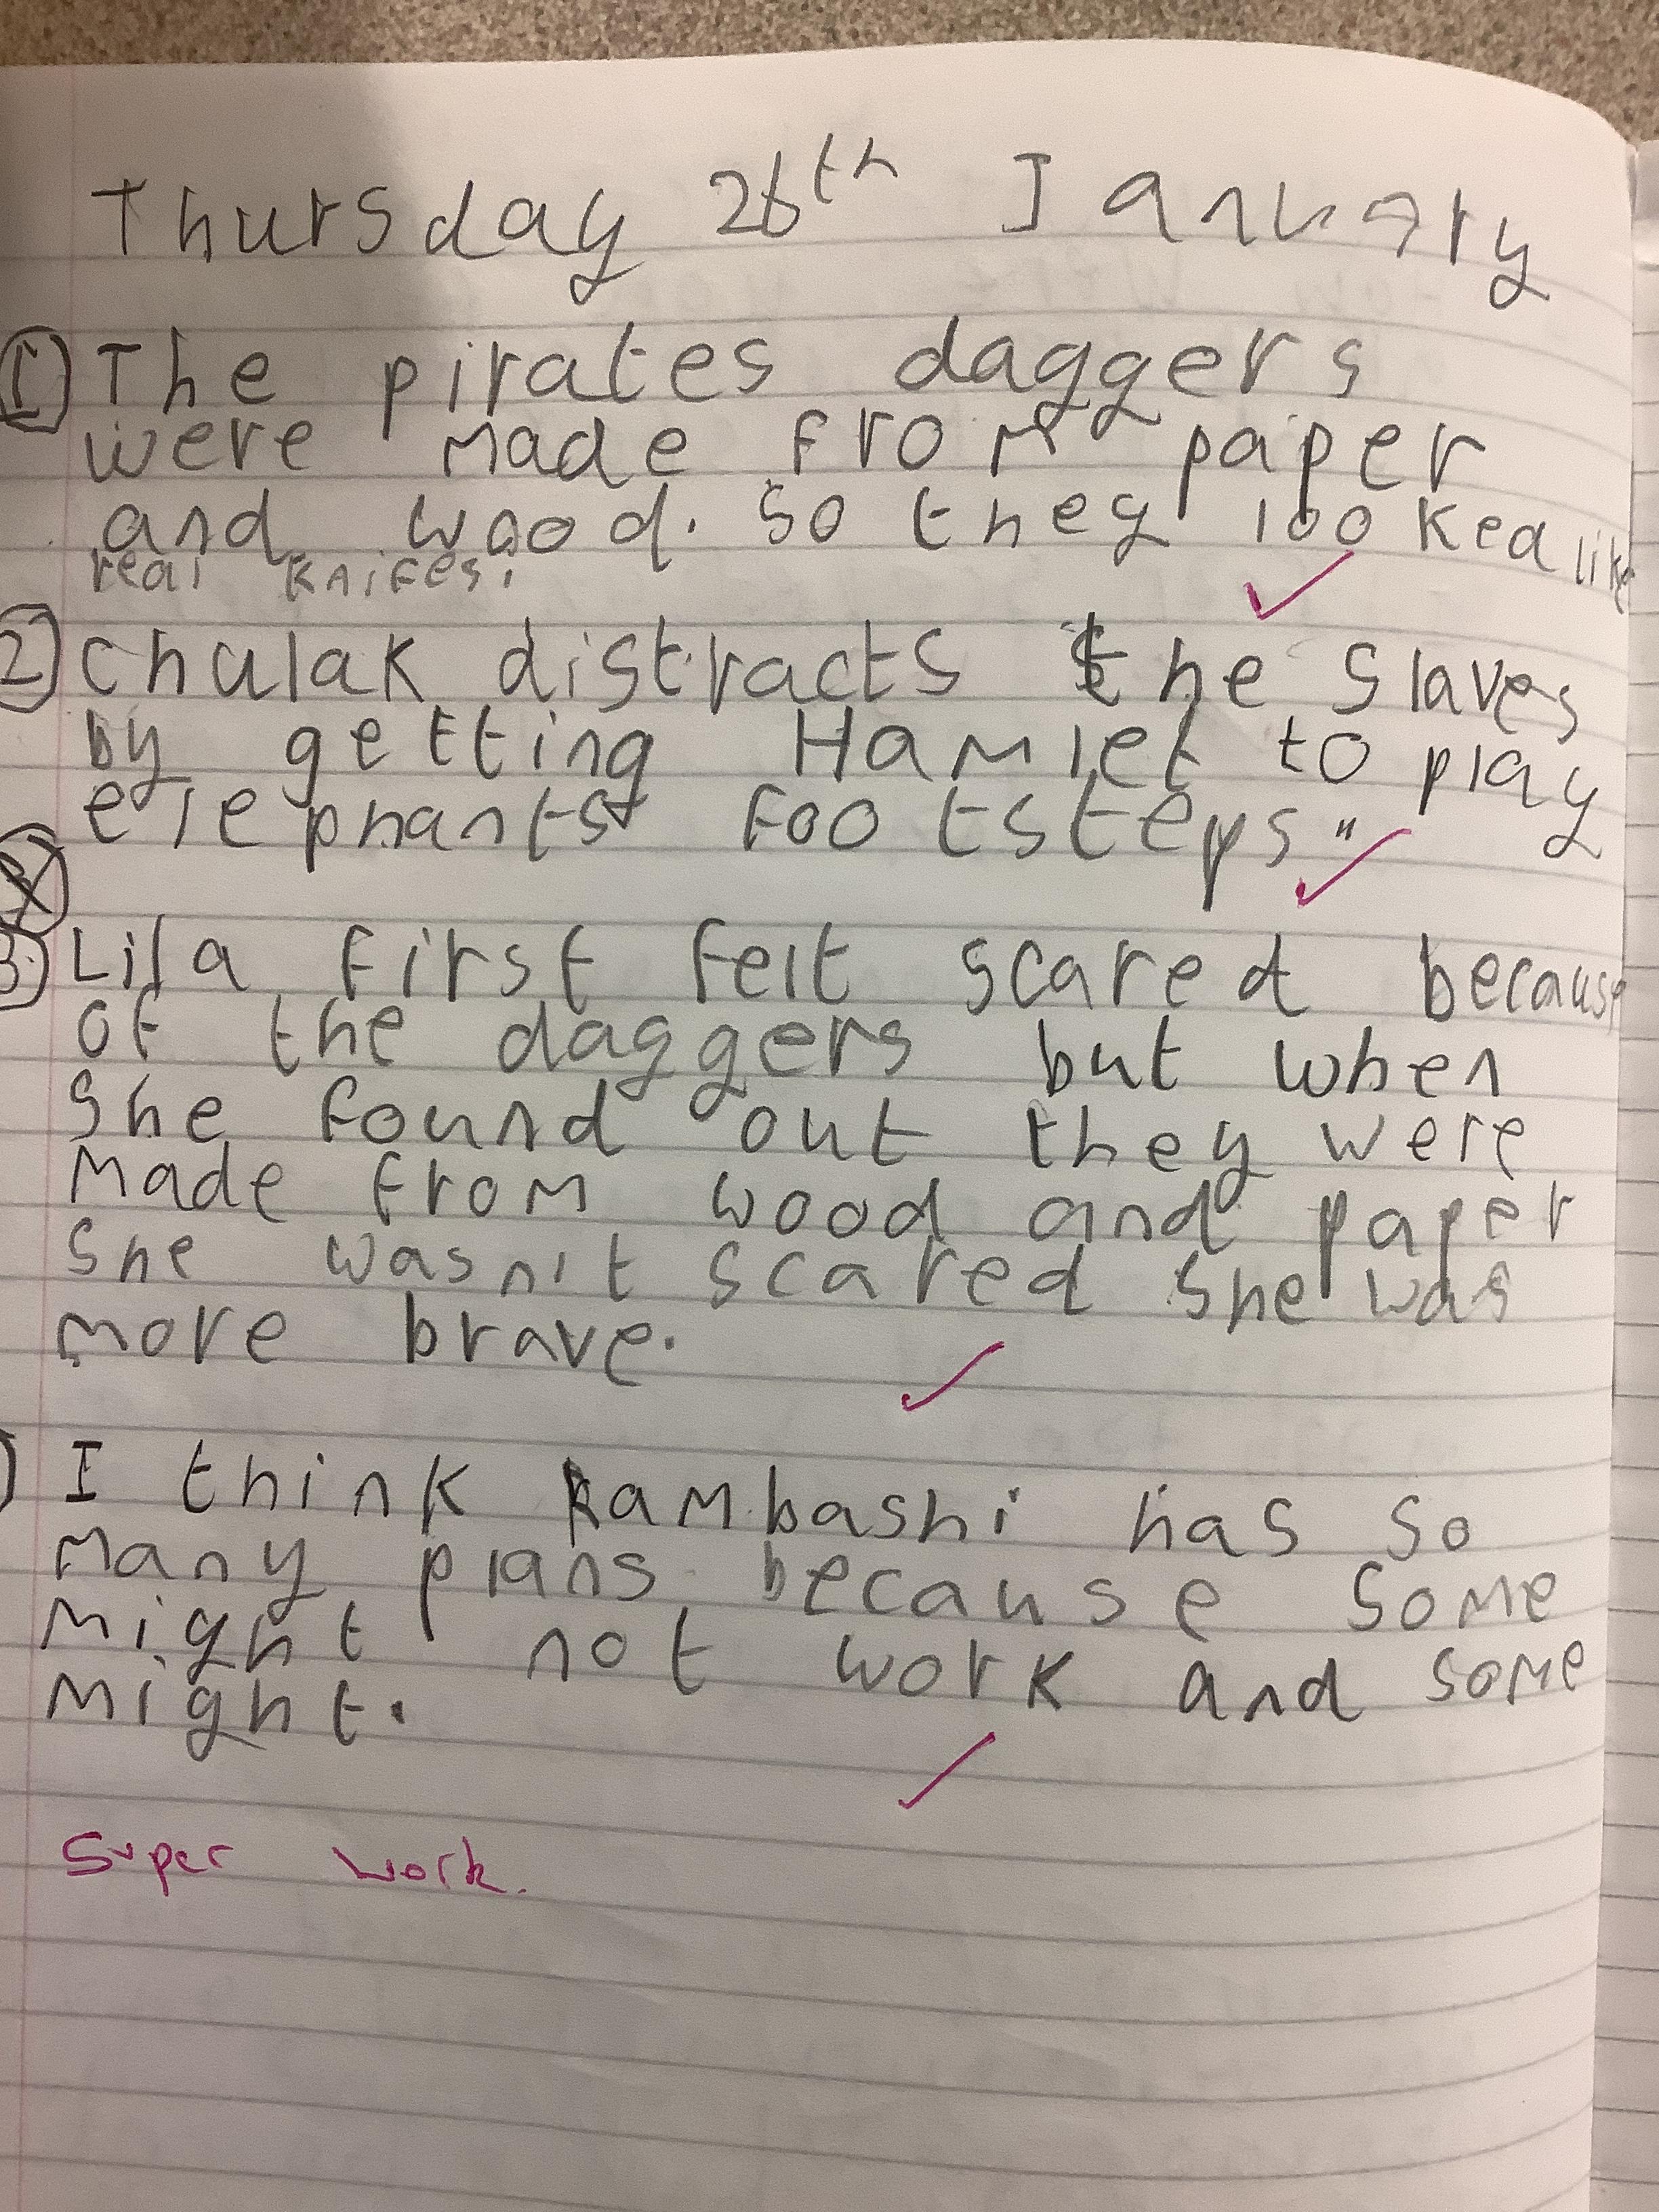 Thursday 26th January
1) The pirates daggers
were made from paper
and wood. So they looked like
real knifes.
2) Chulak distracts the slaves
by getting Hamlet to play
elephants footsteps"
3) Lila first felt scared because
of the daggers but when
She found out they were
made from wood and paper
she wasn't scared she was
more brave.
) I think Rambashi has so
many plans because some
might not work and some
might.
Super work.